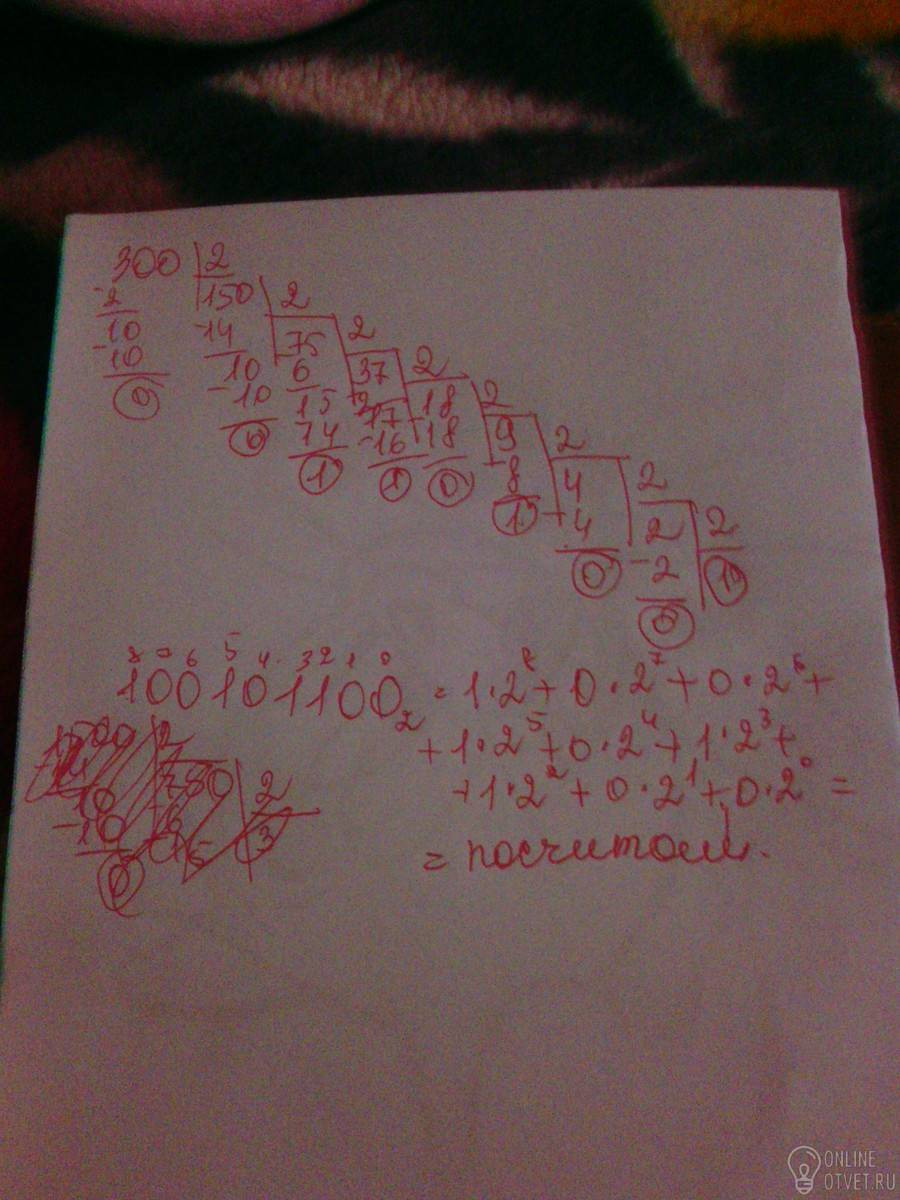 300 | 2
-2 150 | 2
10 -14 75 | 2
-10 10 6 37 | 2
0 -10 15 2 18 | 2
0 14 17 -18 9 | 2
1 -16 0 -8 4 | 2
1 1 -4 2 | 2
0 -2 1
0
8 7 6 5 4 3 2 1 0
100101100₂ = 1·2⁸ + 0·2⁷ + 0·2⁶ +
+ 1·2⁵ + 0·2⁴ + 1·2³ +
+ 1·2² + 0·2¹ + 0·2⁰ =
= посчитали.
ONLINE
OTVET.RU